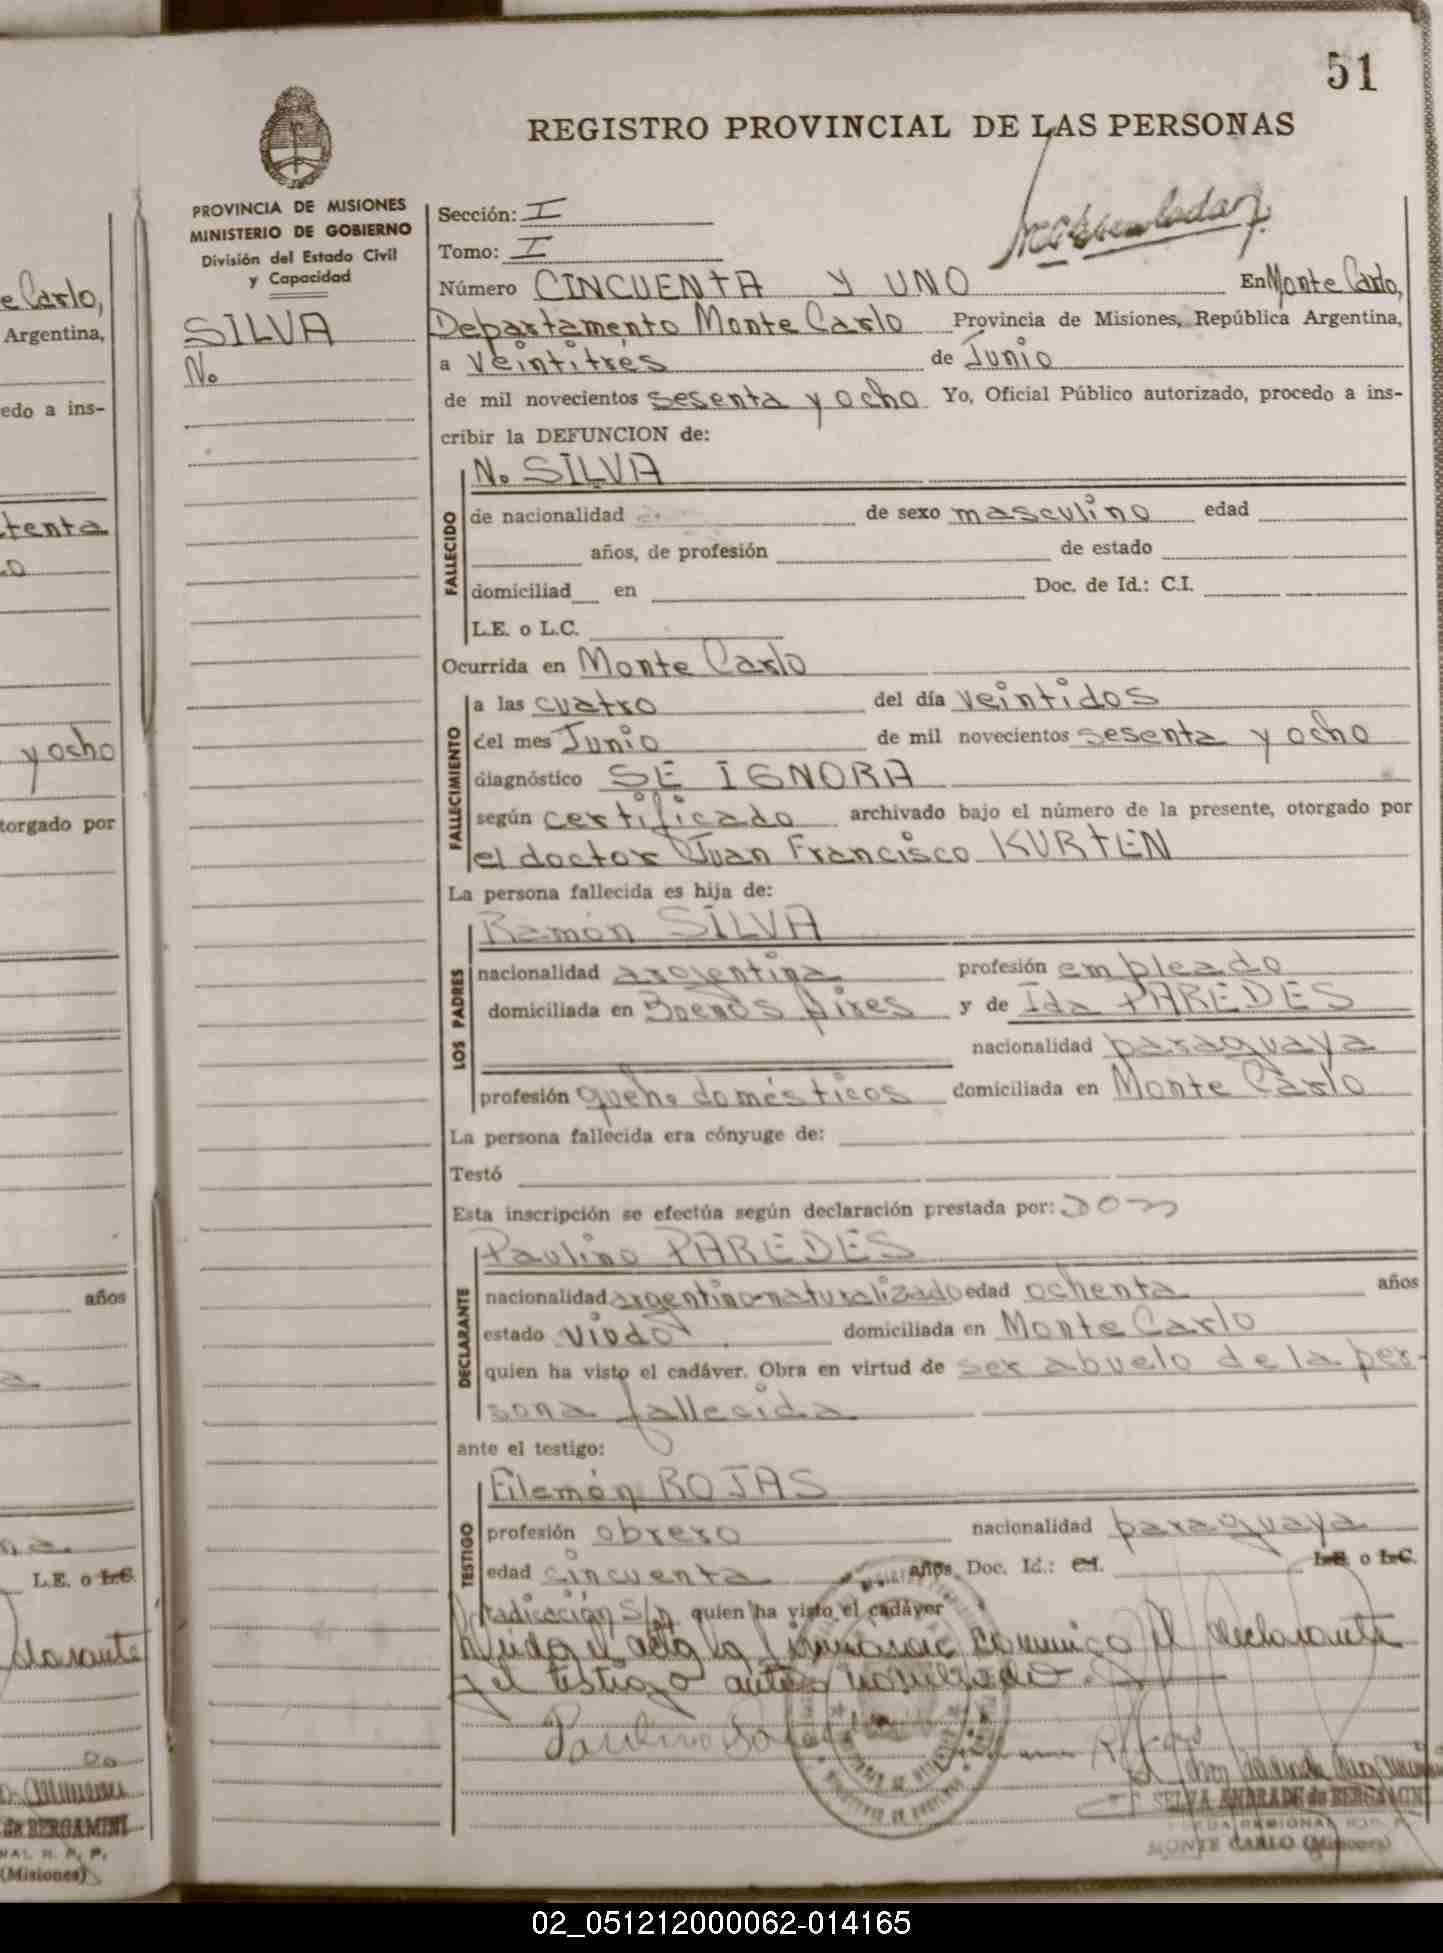 51
REGISTRO PROVINCIAL DE LAS PERSONAS
PROVINCIA DE MISIONES
MINISTERIO DE GOBIERNO
División del Estado Civil
y Capacidad
SILVA
N.
Sección: I
Tomo: I
Número CINCUENTA Y UNO En Monte Carlo,
Departamento Monte Carlo Provincia de Misiones, República Argentina,
a veintitrés de Junio
de mil novecientos sesenta y ocho Yo, Oficial Público autorizado, procedo a ins-
cribir la DEFUNCION de:
FALLECIDO
N. SILVA
de nacionalidad de sexo masculino edad
años, de profesión de estado
domiciliad en Doc. de Id.: C.I.
L.E. o L.C.
Ocurrida en Monte Carlo
FALLECIMIENTO
a las cuatro del día veintidos
del mes Junio de mil novecientos sesenta y ocho
diagnóstico SE IGNORA
según certificado archivado bajo el número de la presente, otorgado por
el doctor Juan Francisco KURTEN
La persona fallecida es hija de:
LOS PADRES
Ramón SILVA
nacionalidad argentina profesión empleado
domiciliada en Buenos Aires y de Ida PAREDES
nacionalidad paraguaya
profesión queh. domésticos domiciliada en Monte Carlo
La persona fallecida era cónyuge de:
Testó
Esta inscripción se efectúa según declaración prestada por: don
DECLARANTE
Paulino PAREDES
nacionalidad argentino naturalizado edad ochenta años
estado viudo domiciliada en Monte Carlo
quien ha visto el cadáver. Obra en virtud de ser abuelo de la per-
sona fallecida
ante el testigo:
TESTIGO
Filemón ROJAS
profesión obrero nacionalidad paraguaya
edad cincuenta años, Doc. Id.: C.I. L.E. o L.C.
radicación S/n quien ha visto el cadáver
acta la conmigo el declarante
y el testigo antes
Paulino
SELVA ANDRADE de BERGAMINI
MONTE CARLO (Misiones)
e Carlo,
Argentina,
edo a ins-
tenta
y ocho
torgado por
años
L.E. o L.C.
de BERGAMINI
(Misiones)
02_051212000062-014165